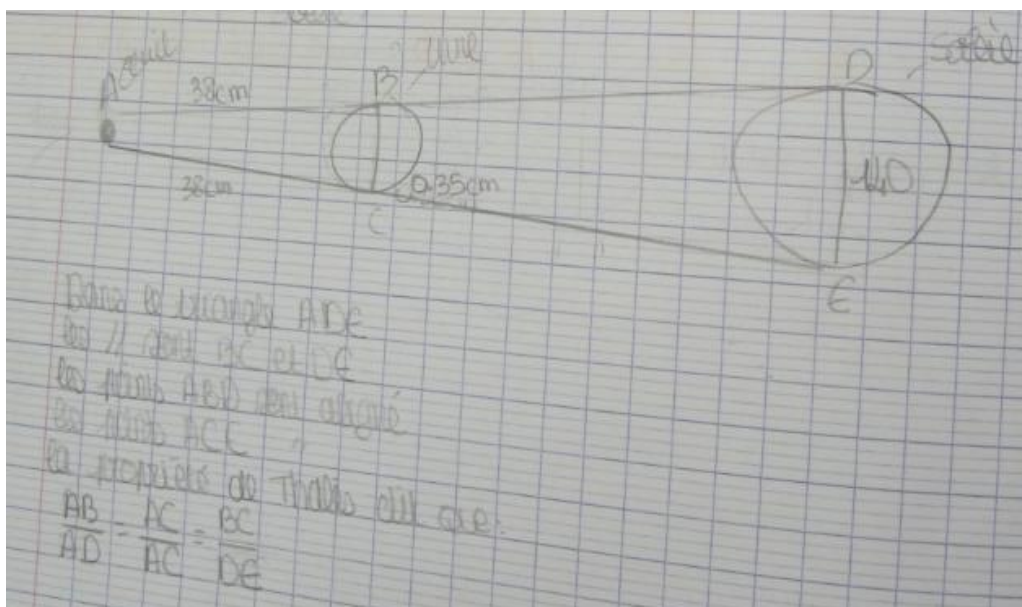 A œuil
38cm
B
Lune
D
Soleil
38cm
0,35cm
C
140
E
Dans le triangle ADE
les // sont BC et DE
les points ABD sont aligné
les points ACE "
la propriété de Thalès dit que:
AB/AD = AC/AC = BC/DE